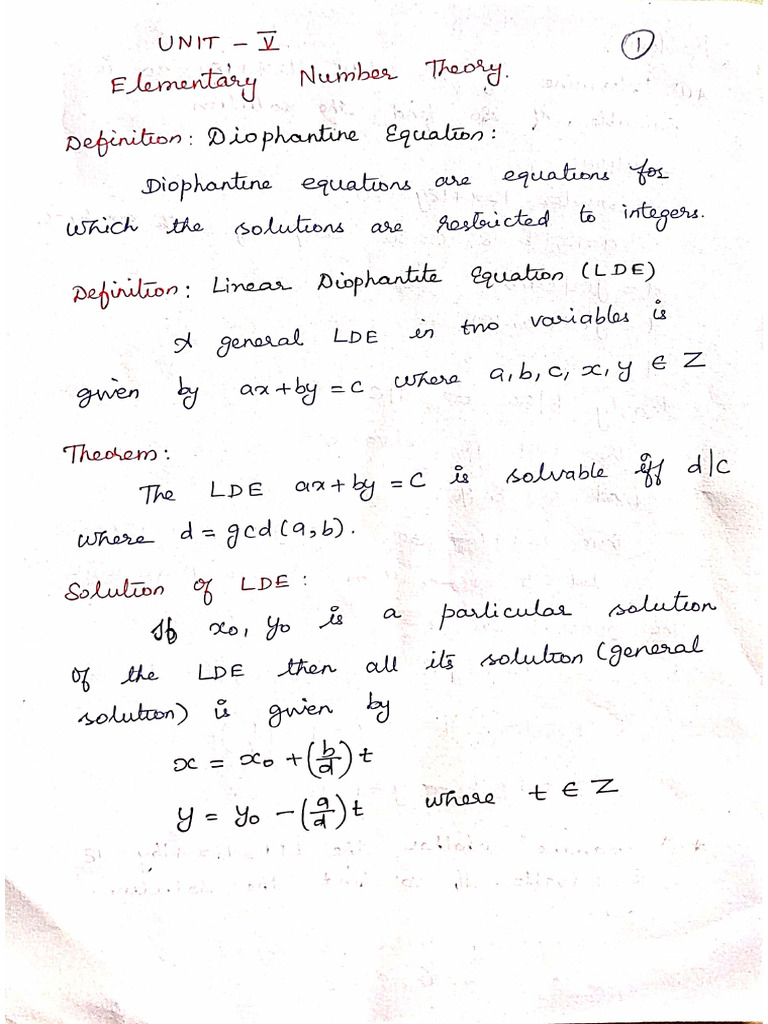 UNIT - V
1
Elementary Number Theory.
Definition: Diophantine Equation:
Diophantine equations are equations for
which the solutions are restricted to integers.
Definition: Linear Diophantite Equation (LDE)
A general LDE in two variables is
given by ax+by=c where a, b, c, x, y ∈ Z
Theorem:
The LDE ax+by=c is solvable iff d|c
where d = gcd(a,b).
Solution of LDE:
If x₀, y₀ is a particular solution
of the LDE then all its solution (general
solution) is given by
x = x₀ + (b/d)t
y = y₀ - (a/d)t where t ∈ Z